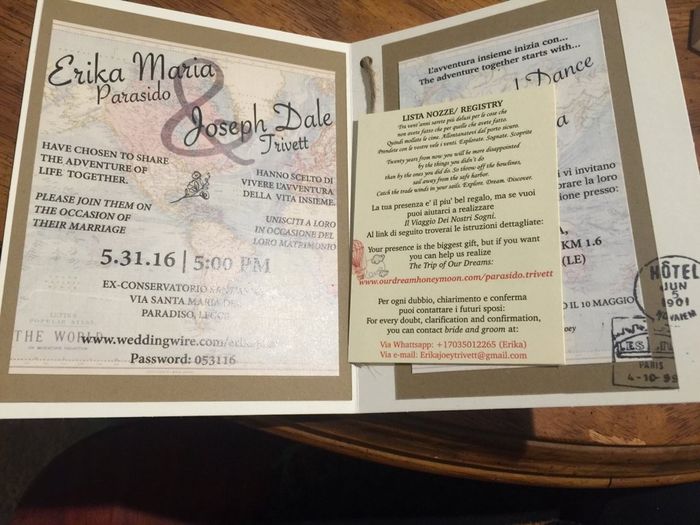 Erika Maria
Parasido
&
Joseph Dale
Trivett
HAVE CHOSEN TO SHARE
THE ADVENTURE OF
LIFE TOGETHER.
PLEASE JOIN THEM ON
THE OCCASION OF
THEIR MARRIAGE
HANNO SCELTO DI
VIVERE L'AVVENTURA
DELLA VITA INSIEME.
UNISCITI A LORO
IN OCCASIONE DEL
LORO MATRIMONIO
5.31.16 | 5:00 PM
EX-CONSERVATORIO
VIA SANTA MARIA DEL
PARADISO, LECCE
www.weddingwire.com/
Password: 053116
THE WORLD
LISTA NOZZE/ REGISTRY
Tra vent'anni sarete più delusi per le cose che
non avete fatto che per quelle che avete fatto.
Quindi mollate le cime. Allontanatevi dal porto sicuro.
Prendete con le vostre vele i venti. Esplorate. Sognate. Scoprite
Twenty years from now you will be more disappointed
by the things you didn't do
than by the ones you did do. So throw off the bowlines,
sail away from the safe harbor.
Catch the trade winds in your sails. Explore. Dream. Discover.
La tua presenza e' il piu' bel regalo, ma se vuoi
puoi aiutarci a realizzare
Il Viaggio Dei Nostri Sogni.
Al link di seguito troverai le istruzioni dettagliate:
Your presence is the biggest gift, but if you want
you can help us realize
The Trip of Our Dreams:
www.ourdreamhoneymoon.com/parasido.trivett
Per ogni dubbio, chiarimento e conferma
puoi contattare i futuri sposi:
For every doubt, clarification and confirmation,
you can contact bride and groom at:
Via Whatsapp: +17035012265 (Erika)
Via e-mail: Erikajoeytrivett@gmail.com
L'avventura insieme inizia con...
The adventure together starts with...
Dance
vi invitano
rare la loro
zione presso:
KM 1.6
(LE)
O IL 10 MAGGIO
oey
HÔTEL
JUN
1901
PARIS
4-10-99